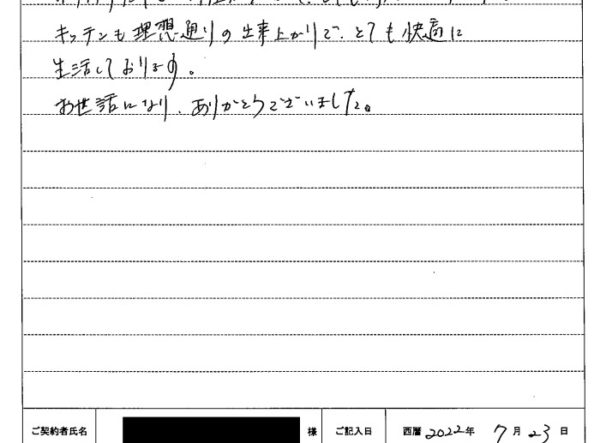 キッチンも理想通りの出来上がりで、とても快適に
生活しております。
お世話になり、ありがとうございました。
ご契約者氏名 様 ご記入日 西暦 2022年 7月 23日